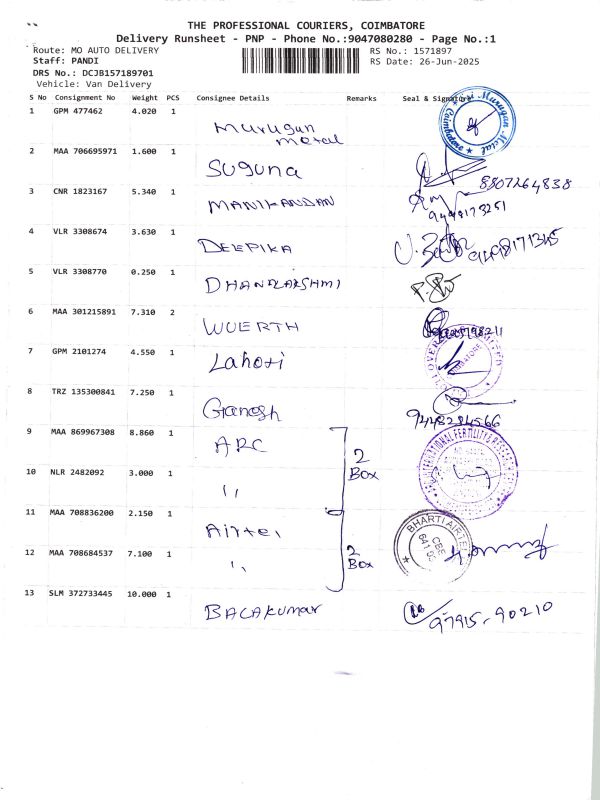 THE PROFESSIONAL COURIERS, COIMBATORE
Delivery Runsheet - PNP - Phone No.:9047080280 - Page No.:1
Route: MO AUTO DELIVERY
RS No.: 1571897
Staff: PANDI
RS Date: 26-Jun-2025
DRS No.: DCJB157189701
Vehicle: Van Delivery
S No Consignment No Weight PCS Consignee Details Remarks Seal & Signature
1 GPM 477462 4.020 1 Murugan Metal Sri Murugan Metal
2 MAA 706695971 1.600 1 Suguna 8807264838
3 CNR 1823167 5.340 1 MANIKANDAN
4 VLR 3308674 3.630 1 DEEPIKA
5 VLR 3308770 0.250 1 DHANALAKSHMI
6 MAA 301215891 7.310 2 WUERTH
7 GPM 2101274 4.550 1 Lahoti
8 TRZ 135300841 7.250 1 Ganesh
9 MAA 869967308 8.860 1 ARC 2 Box
10 NLR 2482092 3.000 1 "
11 MAA 708836200 2.150 1 Airtel 2 Box BHARTI AIRTEL CBE
12 MAA 708684537 7.100 1 "
13 SLM 372733445 10.000 1 BALAKUMAR 97915-90210